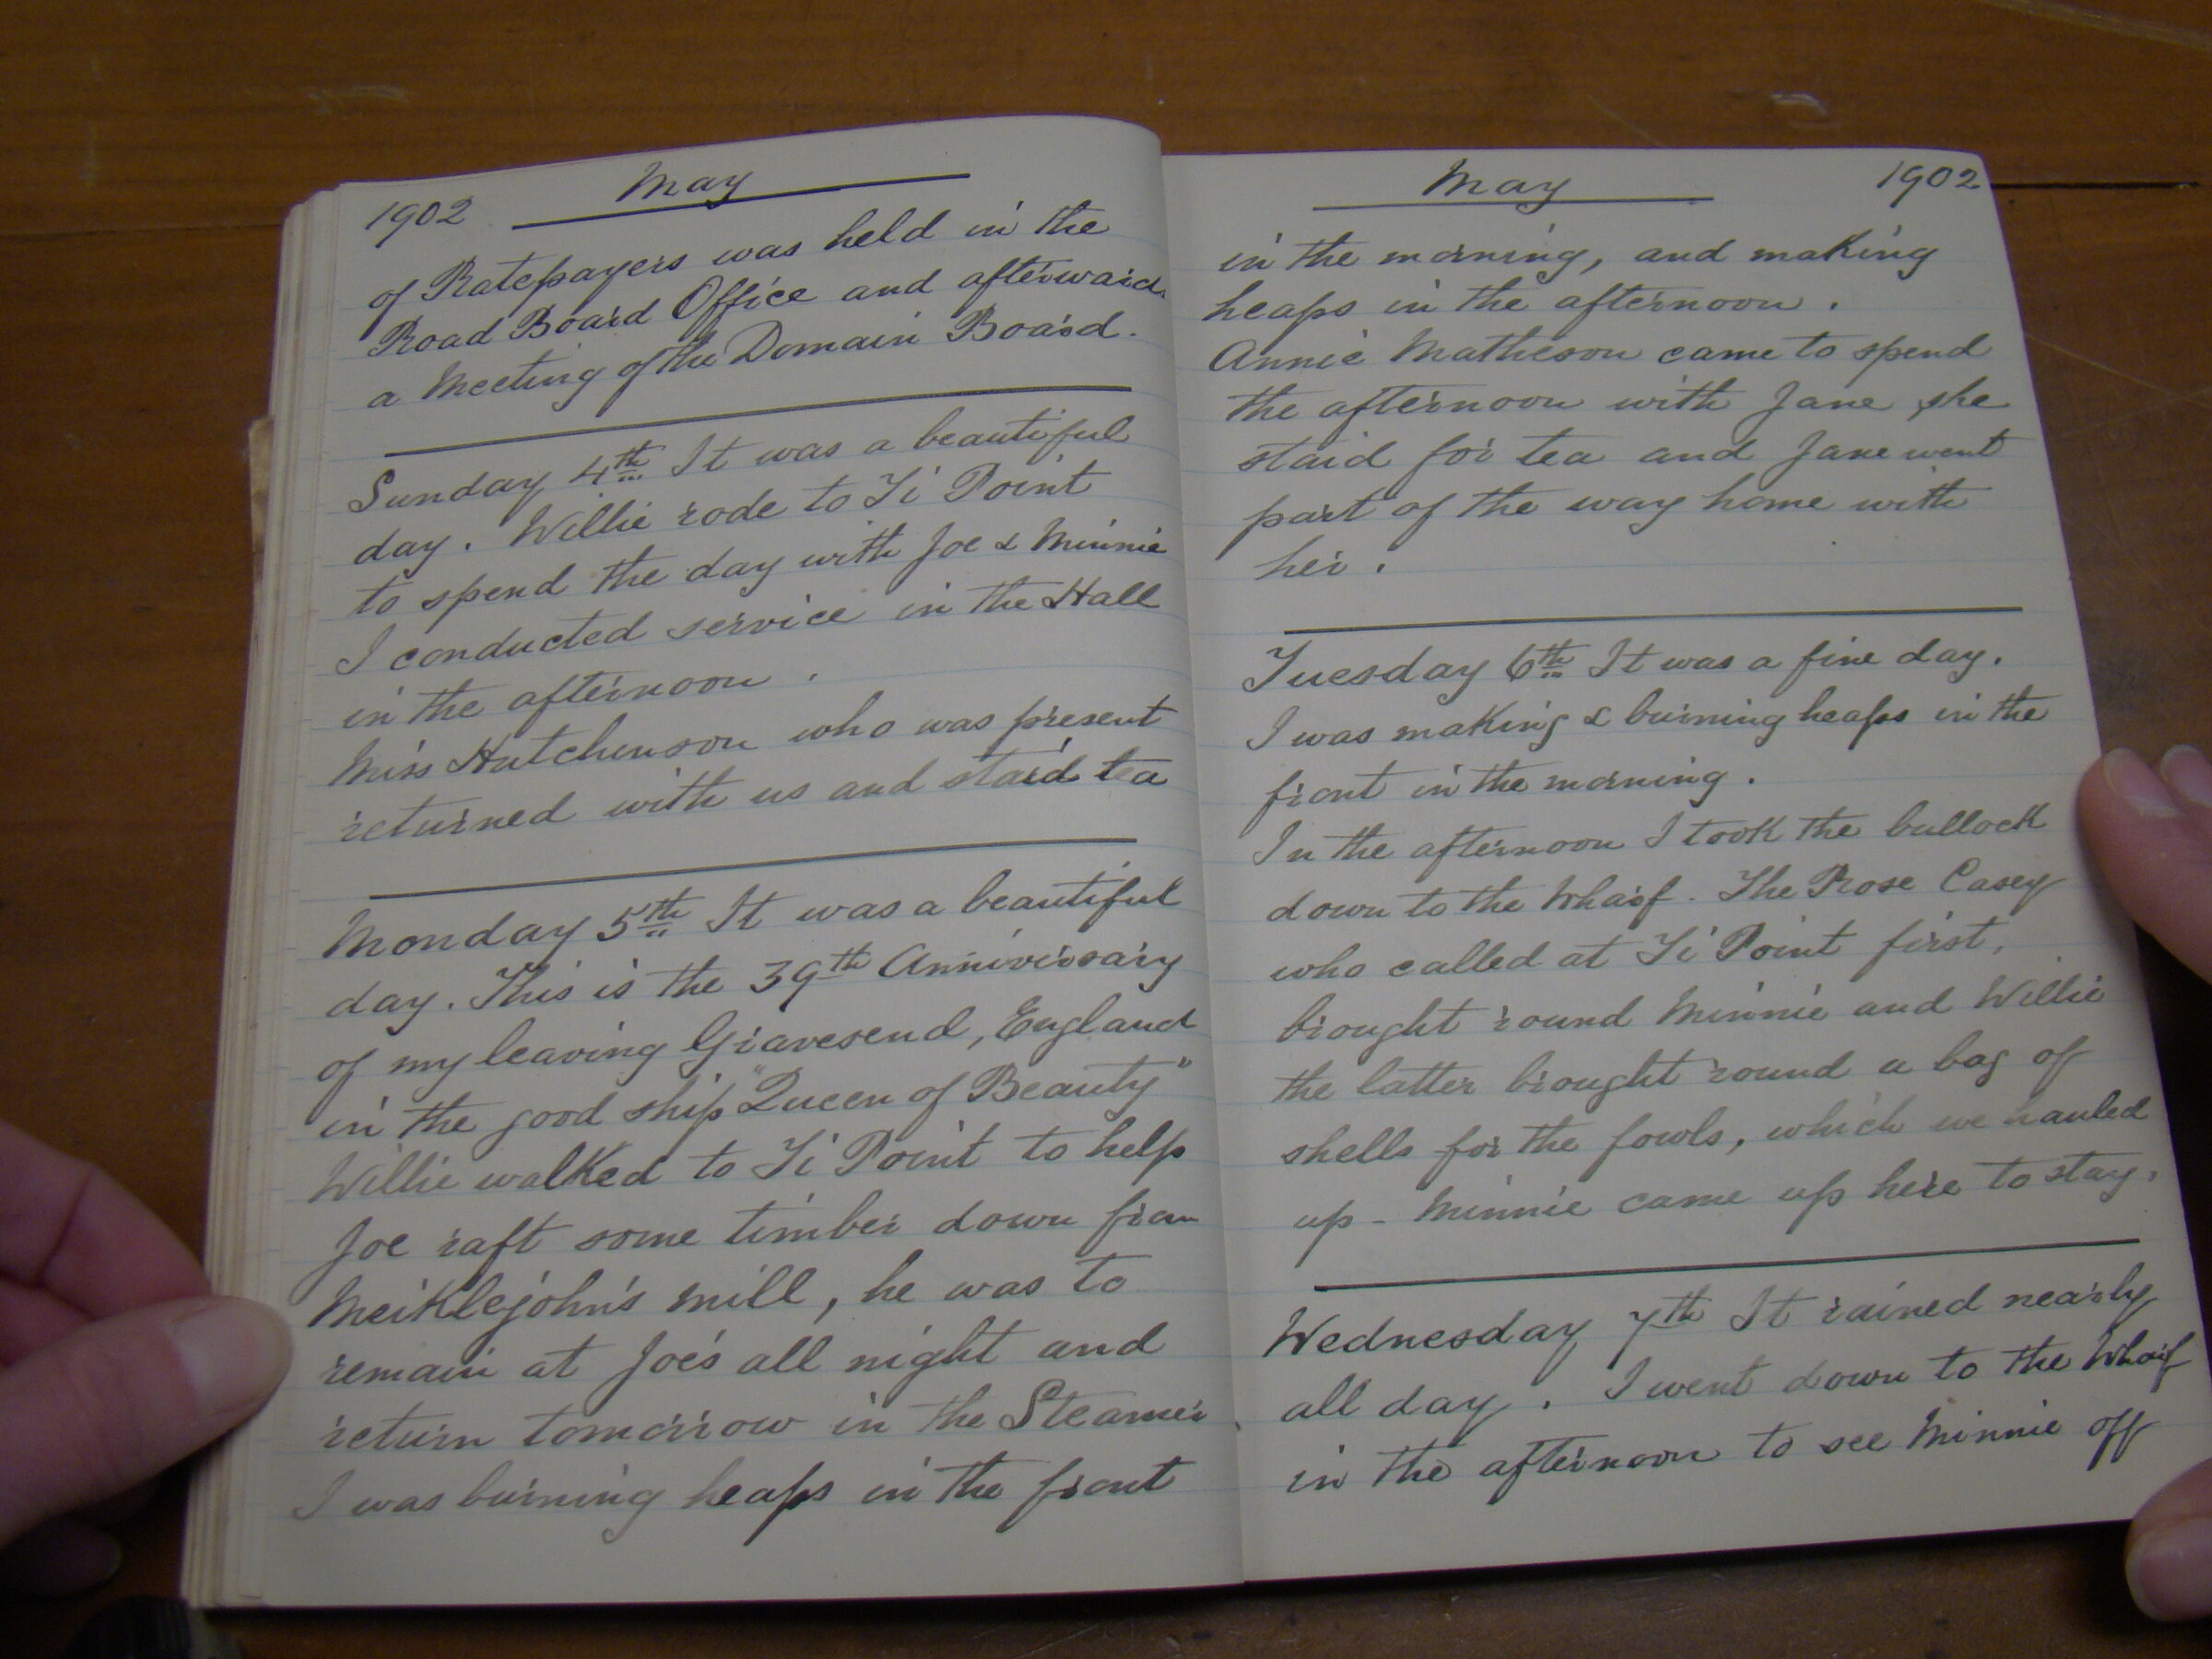 1902 May
of Ratepayers was held in the
Road Board Office and afterwards
a Meeting of the Domain Board.
Sunday 4th It was a beautiful
day. Willie rode to Ti Point
to spend the day with Joe & Minnie
I conducted service in the Hall
in the afternoon.
Miss Hutchinson who was present
returned with us and staid tea
Monday 5th It was a beautiful
day. This is the 39th Anniversary
of my leaving Gravesend, England
in the good ship "Queen of Beauty"
Willie walked to Ti Point to help
Joe raft some timber down from
Meiklejohn's mill, he was to
remain at Joe's all night and
return tomorrow in the Steamer
I was burning heaps in the front
May 1902
in the morning, and making
heaps in the afternoon.
Annie Matheson came to spend
the afternoon with Jane, she
staid for tea and Jane went
part of the way home with
her.
Tuesday 6th It was a fine day.
I was making & burning heaps in the
front in the morning.
In the afternoon I took the bullock
down to the Wharf. The Rose Casey
who called at Ti Point first,
brought round Minnie and Willie
the latter brought round a bag of
shells for the fowls, which we hauled
up - Minnie came up here to stay.
Wednesday 7th It rained nearly
all day. I went down to the Wharf
in the afternoon to see Minnie off